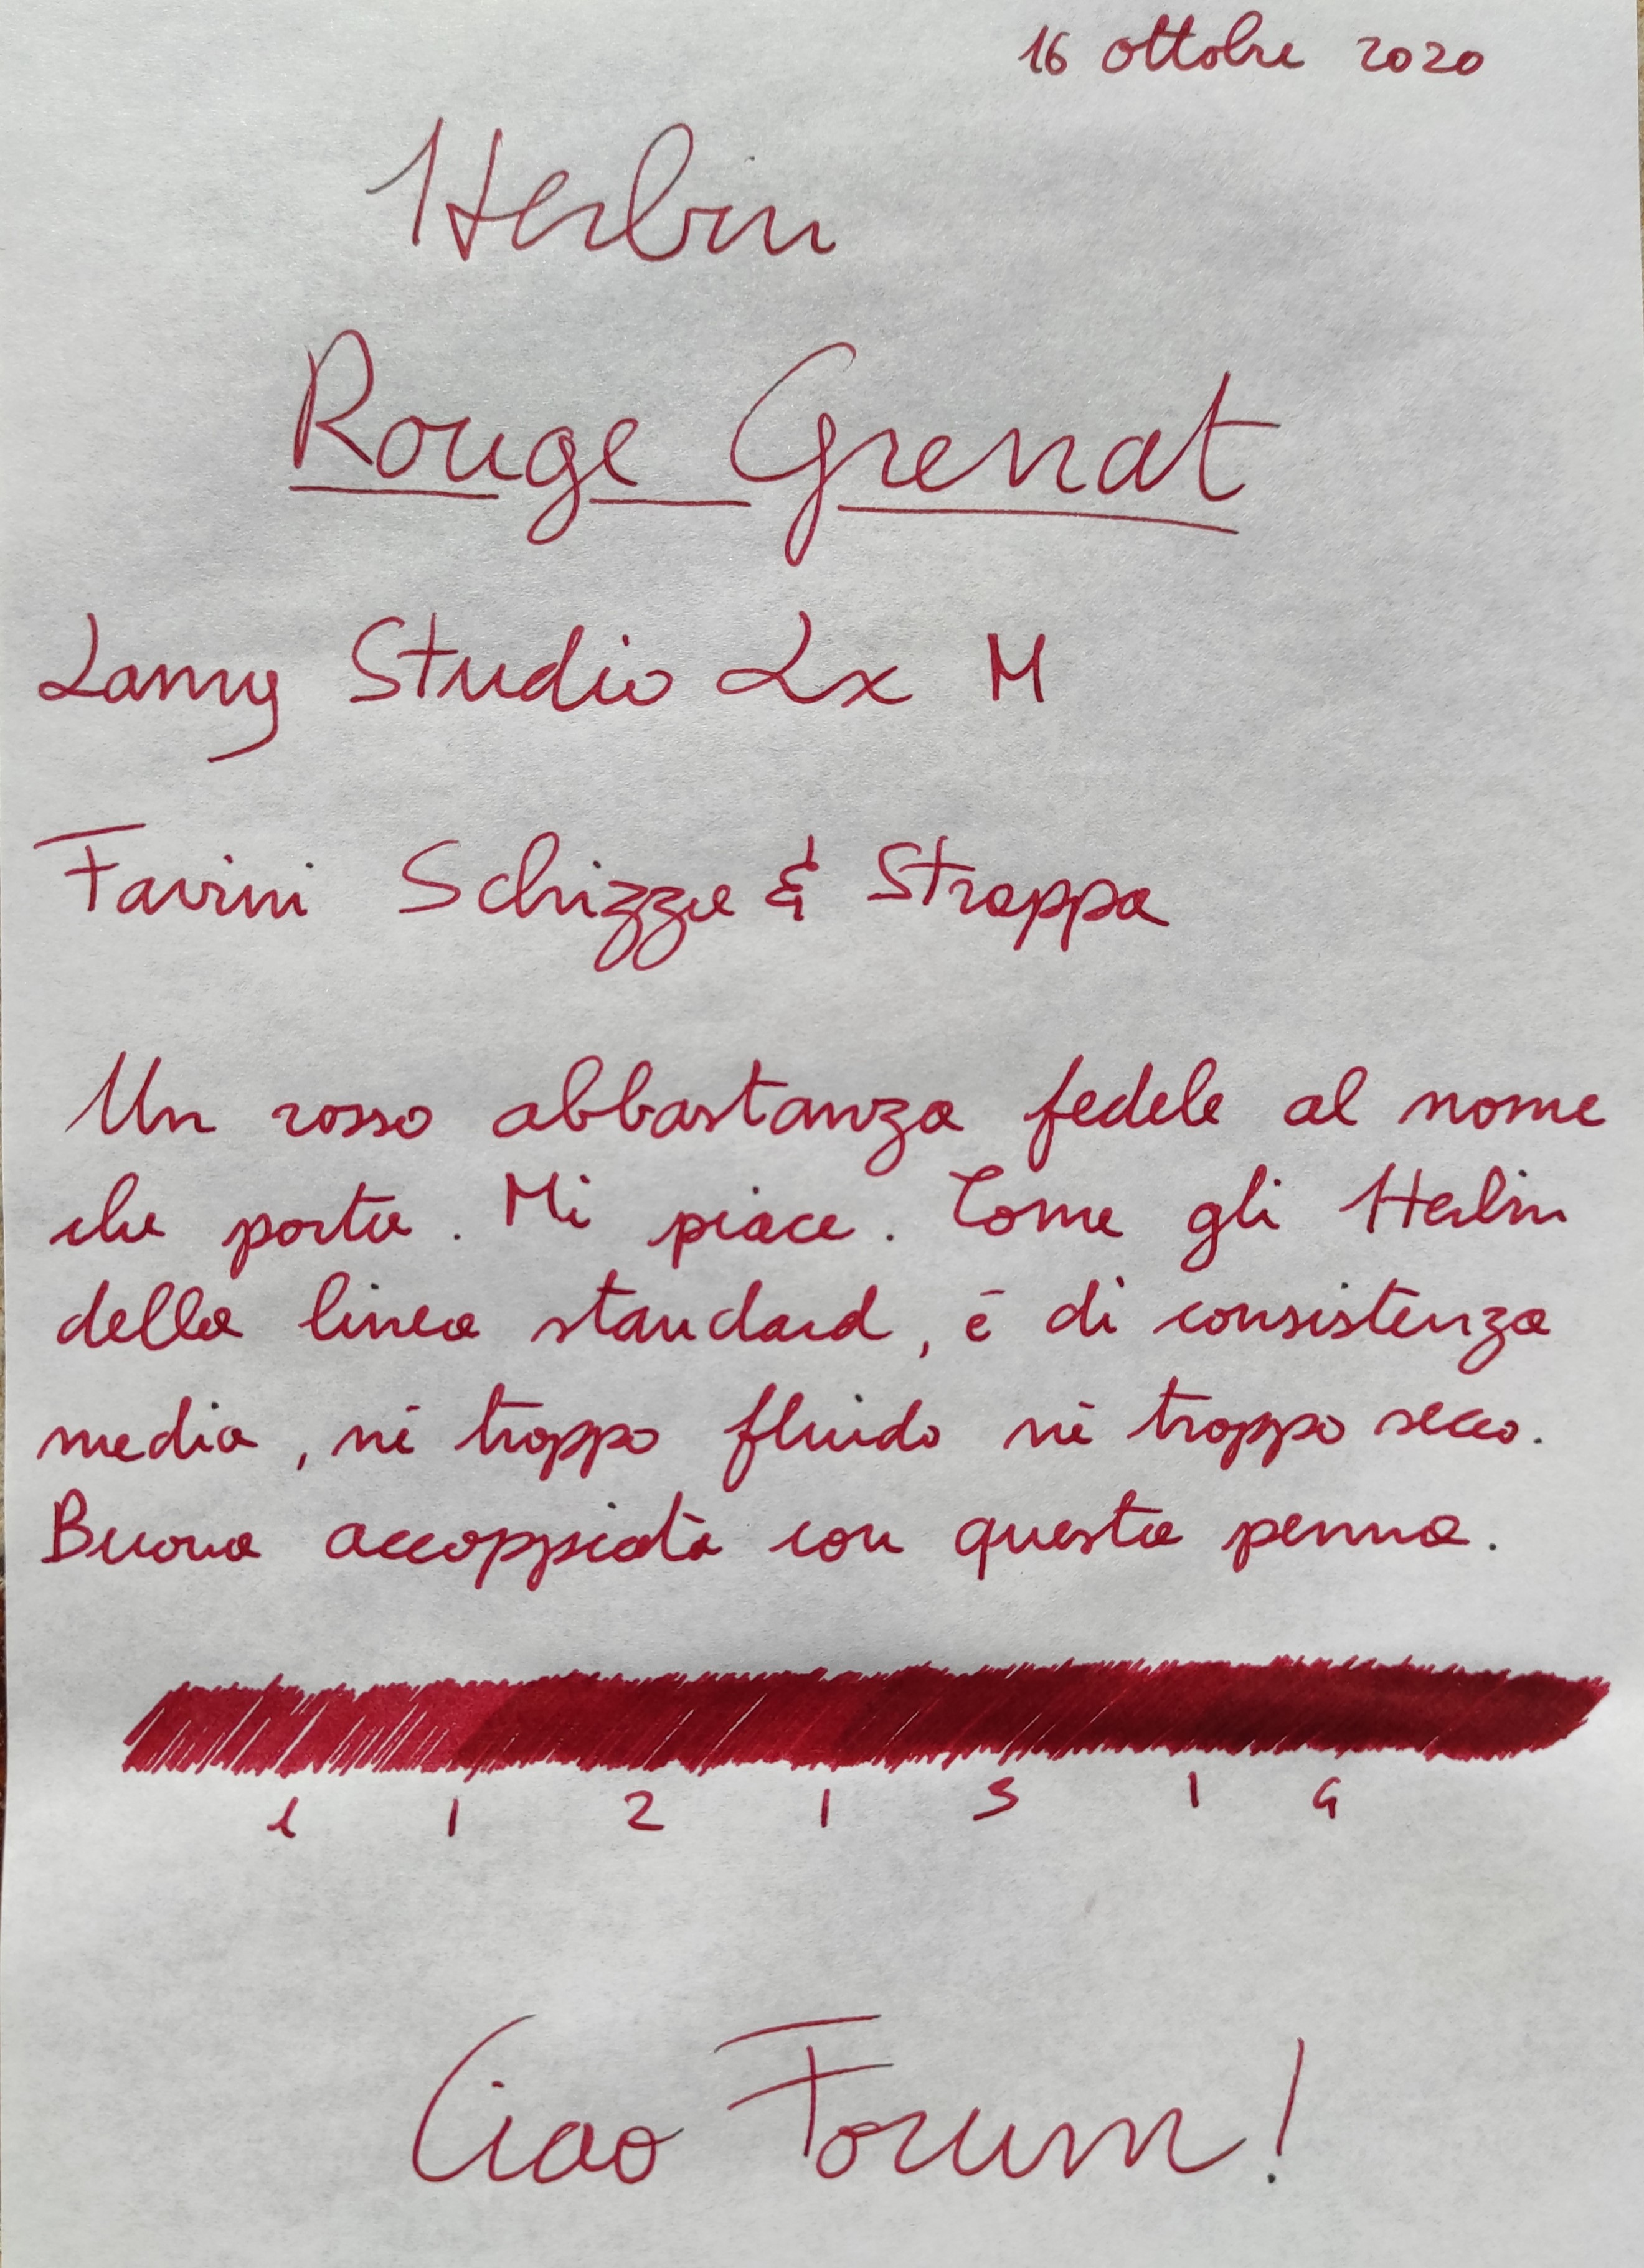 16 ottobre 2020
Herbin
Rouge Grenat
Lamy Studio Lx M
Favini Schizza & Strappa
Un rosso abbastanza fedele al nome
che porta. Mi piace. Come gli Herbin
della linea standard, è di consistenza
media, né troppo fluido né troppo secco.
Buona accoppiata con questa penna.
1 | 2 | 3 | 4
Ciao Forum!